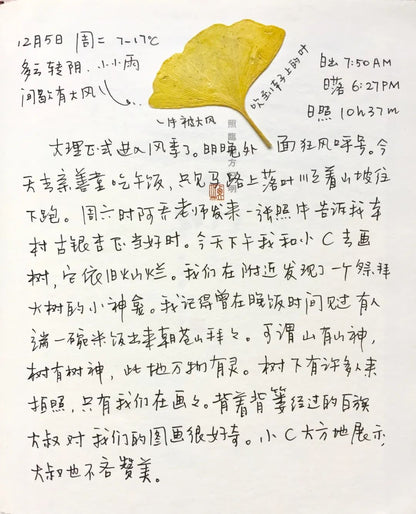 12月5日 周二 7-17℃
多云转阴，小小雨
间歇有大风
一片被大风
吹到车子上的叶
日出 7:50 AM
日落 6:27 PM
日照 10h37m
照臨
方
明
大理正式进入风季了。明晚外面狂风呼号。今
天去亲善堂吃午饭，只见马路上落叶顺着山坡往
下跑。周六时阿乔老师发来一张照片告诉我车
村古银杏正当好时。今天下午我和小C去画
树，它依旧灿烂。我们在附近发现了一个祭拜
大树的小神龛。我记得曾在晚饭时间见过有人
端一碗米饭出来朝苍山拜々。可谓山有山神，
树有树神，此地万物有灵。树下有许多人来
拍照，只有我们在画々。背着背篓经过的白族
大叔对我们的图画很好奇。小C大方地展示，
大叔也不吝赞美。